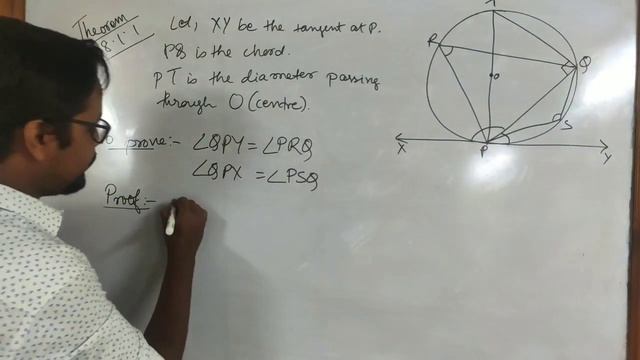 Theorem
8.1.1
Let, XY be the tangent at P.
PQ is the chord.
PT is the diameter passing
through O (centre).
prove:- ∠QPY = ∠PRQ
∠QPX = ∠PSQ
Proof:-
R
Q
O
S
P
X
Y